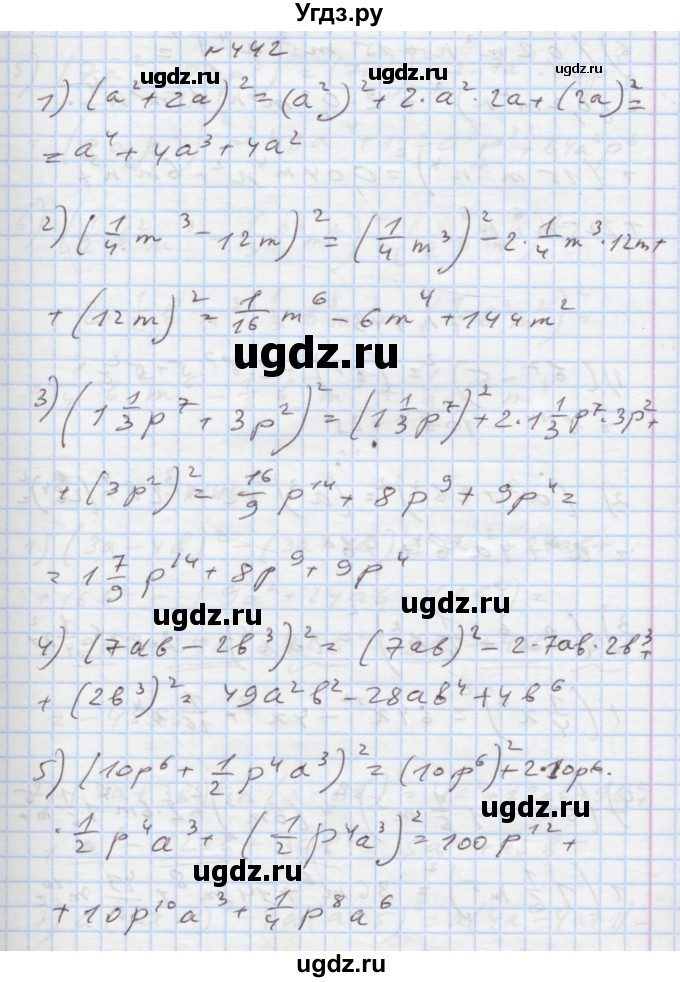 Угдз.ру
№442
ugdz.ru ugdz.ru
1) (a² + 2a)² = (a²)² + 2·a²·2a + (2a)² =
= a⁴ + 4a³ + 4a²
ugdz.ru
2) (1/4 m³ - 12m)² = (1/4 m³)² - 2·1/4 m³·12m +
+ (12m)² = 1/16 m⁶ - 6m⁴ + 144m²
ugdz.ru
3) (1 1/3 p⁷ + 3p²)² = (1 1/3 p⁷)² + 2·1 1/3 p⁷·3p² +
+ (3p²)² = 16/9 p¹⁴ + 8p⁹ + 9p⁴ =
ugdz.ru
= 1 7/9 p¹⁴ + 8p⁹ + 9p⁴
ugdz.ru
ugdz.ru
4) (7ab - 2b³)² = (7ab)² - 2·7ab·2b³ +
+ (2b³)² = 49a²b² - 28ab⁴ + 4b⁶
5) (10p⁶ + 1/2 p⁴a³)² = (10p⁶)² + 2·10p⁶·
ugdz.ru
· 1/2 p⁴a³ + (1/2 p⁴a³)² = 100p¹² +
ugdz.ru
+ 10p¹⁰a³ + 1/4 p⁸a⁶
ugdz.ru